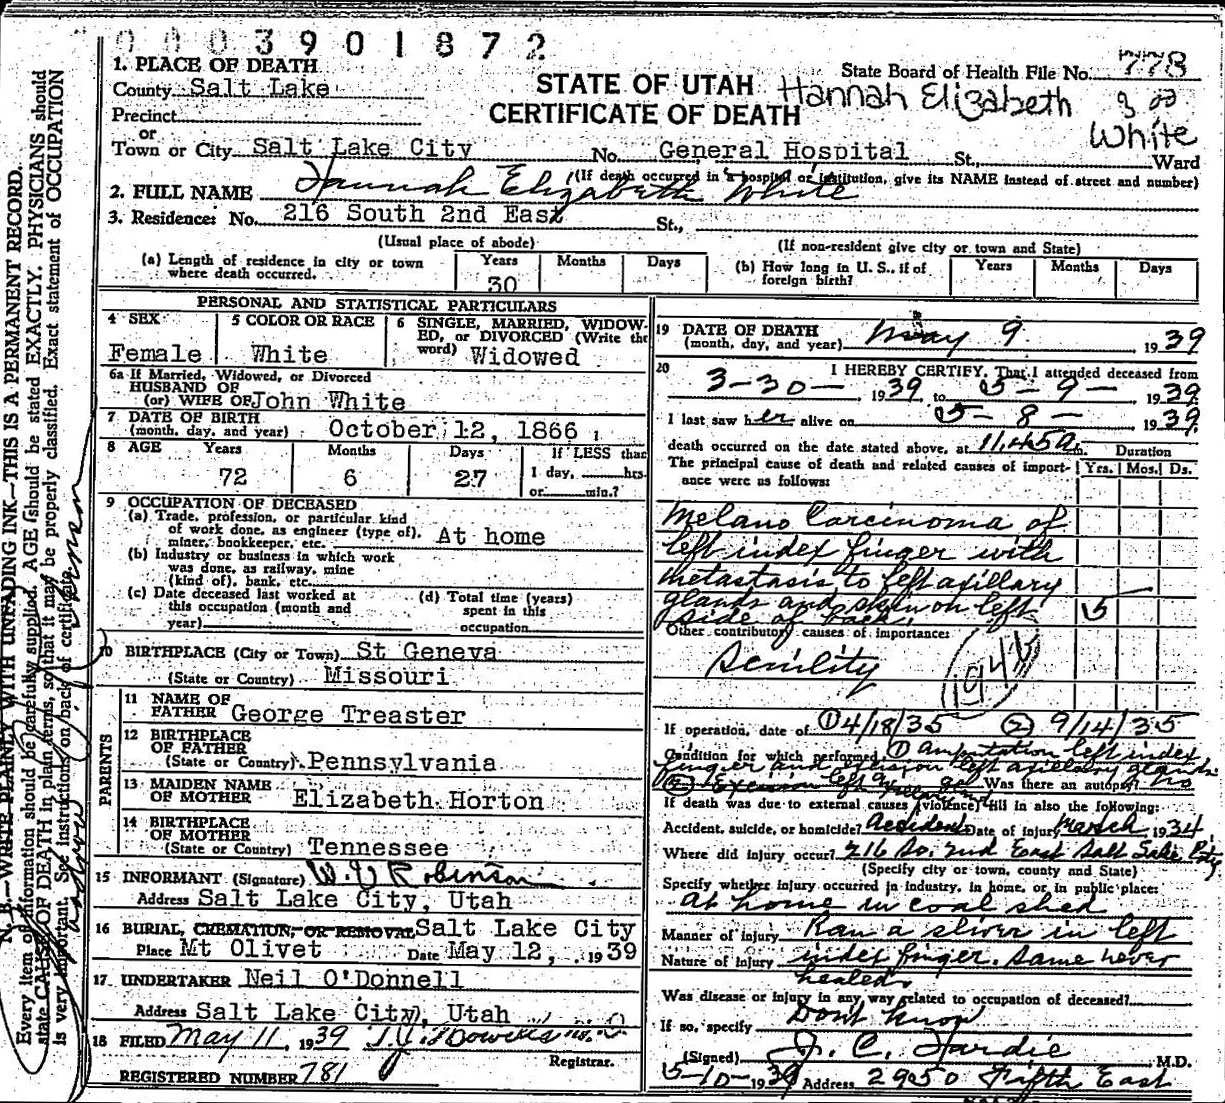 0003901872
1. PLACE OF DEATH
County Salt Lake
Precinct
or
Town or City Salt Lake City No. General Hospital St., Ward
STATE OF UTAH
CERTIFICATE OF DEATH
State Board of Health File No. 778
Hannah Elizabeth
White
(If death occurred in a hospital or institution, give its NAME instead of street and number)
2. FULL NAME Hannah Elizabeth White
3. Residence: No. 216 South 2nd East St.,
(Usual place of abode) (If non-resident give city or town and State)
(a) Length of residence in city or town where death occurred. Years 30 Months Days
(b) How long in U. S., if of foreign birth? Years Months Days
PERSONAL AND STATISTICAL PARTICULARS
4 SEX Female
5 COLOR OR RACE White
6 SINGLE, MARRIED, WIDOWED, or DIVORCED (Write the word) Widowed
6a If Married, Widowed, or Divorced
HUSBAND OF
(or) WIFE OF John White
7 DATE OF BIRTH
(month, day, and year) October 12, 1866
8 AGE Years Months Days If LESS than
72 6 27 1 day, hrs.
or min.?
9 OCCUPATION OF DECEASED
(a) Trade, profession, or particular kind
of work done, as engineer (type of),
miner, bookkeeper, etc. At home
(b) Industry or business in which work
was done, as railway, mine
(kind of), bank, etc.
(c) Date deceased last worked at
this occupation (month and
year)
(d) Total time (years)
spent in this
occupation
10 BIRTHPLACE (City or Town) St Geneva
(State or Country) Missouri
PARENTS
11 NAME OF
FATHER George Treaster
12 BIRTHPLACE
OF FATHER
(State or Country) Pennsylvania
13 MAIDEN NAME
OF MOTHER Elizabeth Horton
14 BIRTHPLACE
OF MOTHER
(State or Country) Tennessee
15 INFORMANT (Signature) W. V Robinson
Address Salt Lake City, Utah
16 BURIAL, CREMATION, OR REMOVAL Salt Lake City
Place Mt Olivet Date May 12, 1939
17 UNDERTAKER Neil O'Donnell
Address Salt Lake City, Utah
18 FILED May 11, 1939
Registrar.
REGISTERED NUMBER 781
19 DATE OF DEATH
(month, day, and year) May 9 1939
20 I HEREBY CERTIFY, That I attended deceased from
3-30- 1939, to 5-9- 1939
I last saw her alive on 5-8- 1939
death occurred on the date stated above, at 11.45a m. Duration
The principal cause of death and related causes of importance were as follows: Yrs. Mos. Ds.
Melano Carcinoma of
left index finger with
metastasis to left axillary
glands and skin on left
side of back. 5
Other contributory causes of importance:
Senility
If operation, date of ① 4/18/35 ② 9/14/35
Condition for which performed ① amputation left index
finger and excision left axillary glands
② Excision left axillary gland Was there an autopsy? No
If death was due to external causes (violence) fill in also the following:
Accident, suicide, or homicide? Accident Date of injury March 1934
Where did injury occur? 216 So. 2nd East Salt Lake City
(Specify city or town, county and State)
Specify whether injury occurred in industry, in home, or in public place:
At home in coal shed
Manner of injury Ran a sliver in left
Nature of injury index finger. Same never
healed
Was disease or injury in any way related to occupation of deceased?
If so, specify Don't know
(Signed) J. C. Hardie M.D.
5-10-1939 Address 2950 Fifth East
N. B.—WRITE PLAINLY WITH UNFADING INK—THIS IS A PERMANENT RECORD.
Every item of information should be carefully supplied. AGE should be stated EXACTLY. PHYSICIANS should
state CAUSE OF DEATH in plain terms, so that it may be properly classified. Exact statement of OCCUPATION
is very important. See instructions on back of certificate.